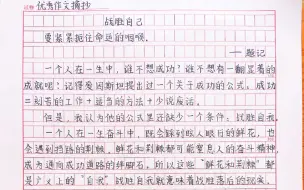 优秀作文摘抄
战胜自己
要紧紧扼住命运的咽喉。
——题记
一个人在一生中,谁不想成功?谁不想有一翻显著的
成就呢?记得爱因斯坦提出过一个关于成功的公式:成功
=刻苦的工作+适当的方法+少说废话。
但是,我认为他的公式里还缺少一个条件:战胜自我。
一个人在一生奋斗中,既会踩到耀人眼目的鲜花,也
会遇到挡路的荆棘。鲜花和荆棘都可能窒息人的奋斗精神,
成为通向成功道路的绊脚石。所以这些"鲜花和荆棘"都
是广义上的"自我"。战胜自我就意味着战胜落后的现实,